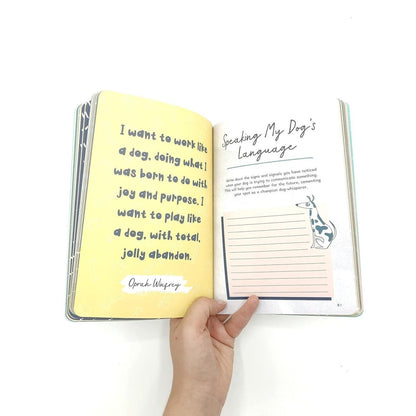 I want to work like
a dog, doing what I
was born to do with
joy and purpose. I
want to play like
a dog, with total,
jolly abandon.
Oprah Winfrey
Speaking My Dog's
Language
Write down the signs and signals you have noticed
when your dog is trying to communicate something.
This will help you remember for the future, cementing
your spot as a champion dog-whisperer.